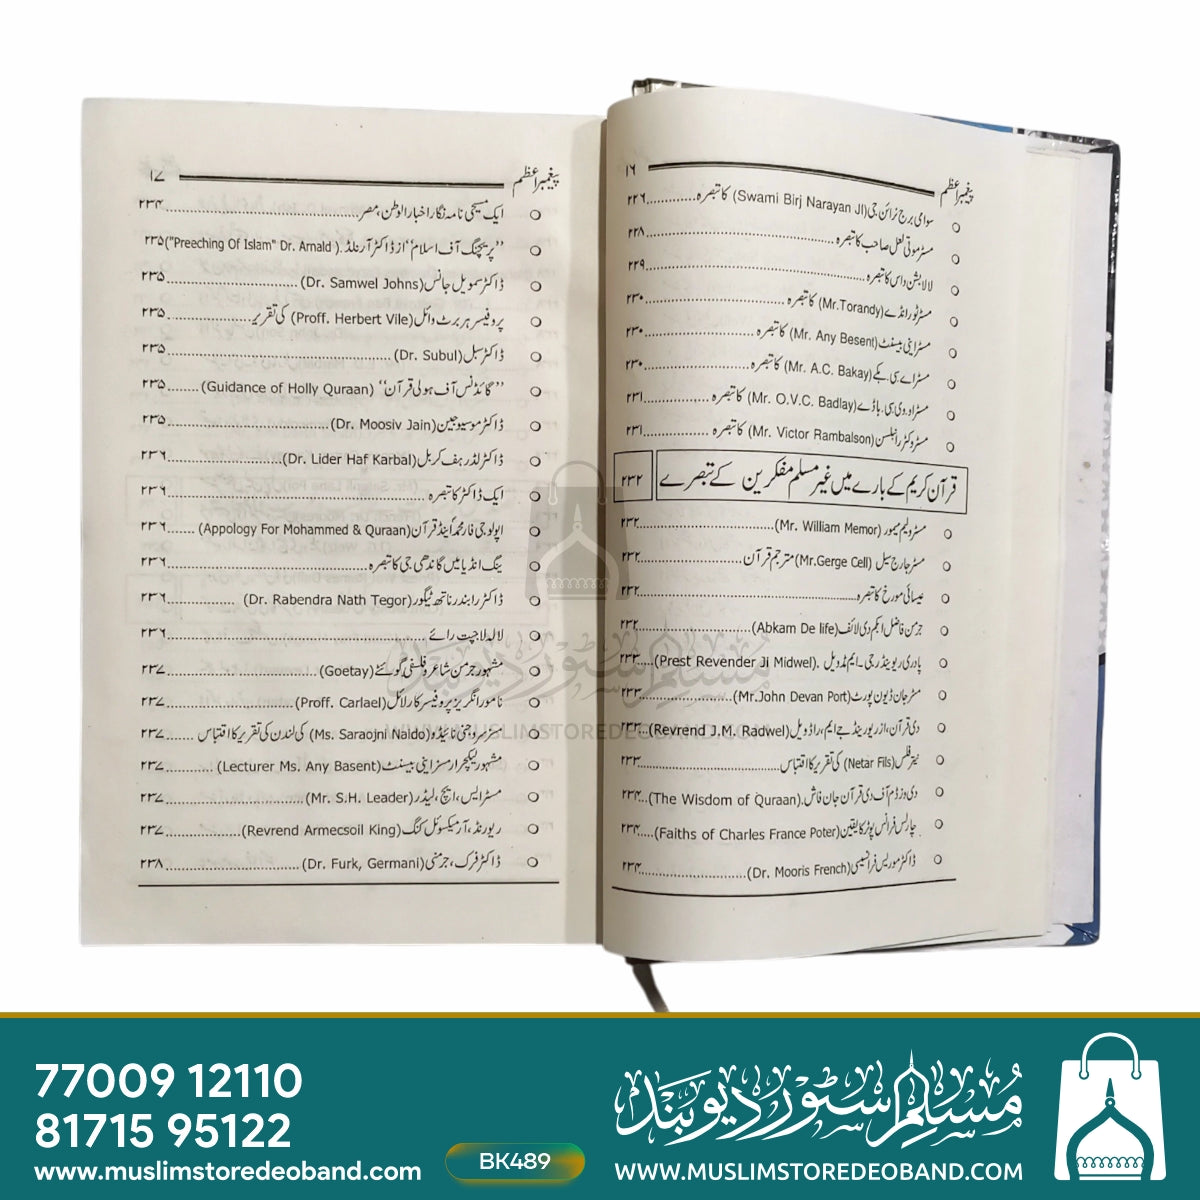 پیغمبر اعظم ۱۶
سوامی برج نرائن جی (Swami Birj Narayan JI) کا تبصرہ............۲۲۶
مسٹر موتی لعل صاحب کا تبصرہ............۲۲۸
لالا بشن داس کا تبصرہ............۲۲۹
مسٹر ٹورانڈے (Mr.Torandy) کا تبصرہ............۲۳۰
مسٹر اینی بیسنٹ (Mr. Any Besent) کا تبصرہ............۲۳۰
مسٹر اے سی بکے (Mr. A.C. Bakay) کا تبصرہ............۲۳۰
مسٹر او.وی.سی. باڈے (Mr. O.V.C. Badlay) کا تبصرہ............۲۳۱
مسٹر وکٹر رامبلسن (Mr. Victor Rambalson) کا تبصرہ............۲۳۱
قرآن کریم کے بارے میں غیر مسلم مفکرین کے تبصرے ۲۳۲
مسٹر ولیم میمور (Mr. William Memor)............۲۳۲
مسٹر جارج سیل (Mr.Gerge Cell) مترجم قرآن............۲۳۲
عیسائی مورخ کا تبصرہ............۲۳۲
جرمن فاضل ابکم دی لائف (Abkam De life)............۲۳۲
پادری ریونڈر جی۔ ایم مڈویل. (Prest Revender Ji Midwel)............۲۳۳
مسٹر جان ڈیون پورٹ (Mr.John Devan Port)............۲۳۳
دی قرآن، از ریورینڈ جے ایم، راڈویل (Revrend J.M. Radwel)............۲۳۳
نیٹر فلس (Netar Fils) کی تقریر کا اقتباس............۲۳۳
دی وزڈم آف دی قرآن جان فاش. (The Wisdom of Quraan)............۲۳۴
چارلس فرانس پوٹر کا یقین (Faiths of Charles France Poter)............۲۳۴
ڈاکٹر موریس فرانسیسی (Dr. Mooris French)............۲۳۴
پیغمبر اعظم ۱۷
ایک مسیحی نامہ نگار اخبار الوطن، مصر............۲۳۴
"پریچنگ آف اسلام" از ڈاکٹر آرنلڈ. ("Preeching Of Islam" Dr. Arnald) ۲۳۵
ڈاکٹر سمویل جانس (Dr. Samwel Johns)............۲۳۵
پروفیسر ہربرٹ وائل (Proff. Herbert Vile) کی تقریر............۲۳۵
ڈاکٹر سبل (Dr. Subul)............۲۳۵
"گائڈنس آف ہولی قرآن" (Guidance of Holly Quraan)............۲۳۵
ڈاکٹر موسیو جین (Dr. Moosiv Jain)............۲۳۵
ڈاکٹر لڈر ہف کربل (Dr. Lider Haf Karbal)............۲۳۶
ایک ڈاکٹر کا تبصرہ............۲۳۶
اپولوجی فار محمد اینڈ قرآن (Appology For Mohammed & Quraan)............۲۳۶
ینگ انڈیا میں گاندھی جی کا تبصرہ............۲۳۶
ڈاکٹر رابندر ناتھ ٹیگور (Dr. Rabendra Nath Tegor)............۲۳۶
لالہ لاجپت رائے............۲۳۶
مشہور جرمن شاعر و فلسفی گوئٹے (Goetay)............۲۳۷
نامور انگریز پروفیسر کارلائل (Proff. Carlael)............۲۳۷
مسز سروجنی نائیڈو (Ms. Saraojni Naldo) کی لندن کی تقریر کا اقتباس............۲۳۷
مشہور لیکچرار مسز اینی بیسنٹ (Lecturer Ms. Any Basent)............۲۳۷
مسٹر ایس، ایچ، لیڈر (Mr. S.H. Leader)............۲۳۷
ریورنڈ، آرمیکسوئل کنگ (Revrend Armecsoil King)............۲۳۷
ڈاکٹر فرک، جرمنی (Dr. Furk, Germani)............۲۳۸
مسلم سٹور دیوبند
WWW.MUSLIMSTOREDEOBAND.COM
77009 12110
81715 95122
www.muslimstoredeoband.com
BK489
مسلم سٹور دیوبند
WWW.MUSLIMSTOREDEOBAND.COM